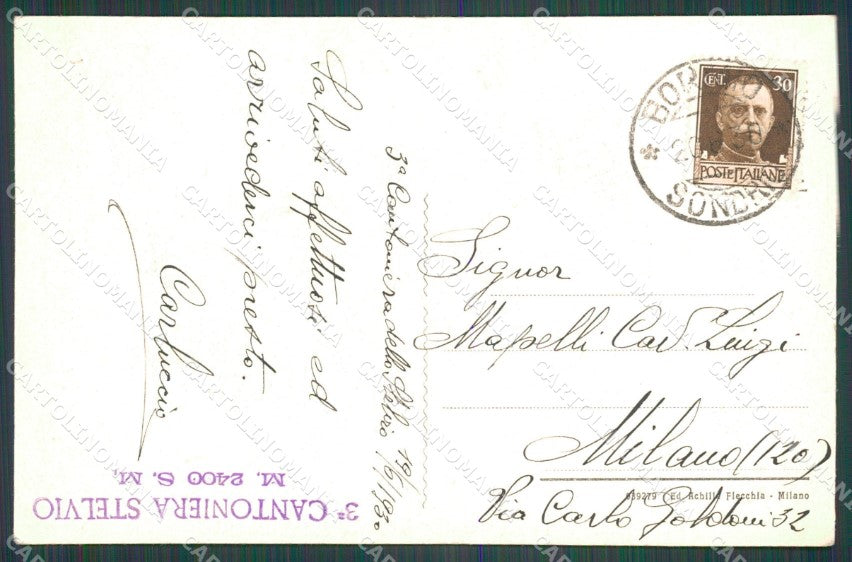 3ª Cantoniera dello Stelvio 19/6/1930
Saluti affettuosi ed
arrivederci presto.
Carluccio
3ª CANTONIERA STELVIO
M. 2400 S. M.
CENT. 30
POSTE ITALIANE
BORMIO
SONDRIO
Signor
Mapelli Cav. Luigi
Milano (120)
Via Carlo Goldoni 32
Ed. Achille Flecchia - Milano
CARTOLINOMANIA